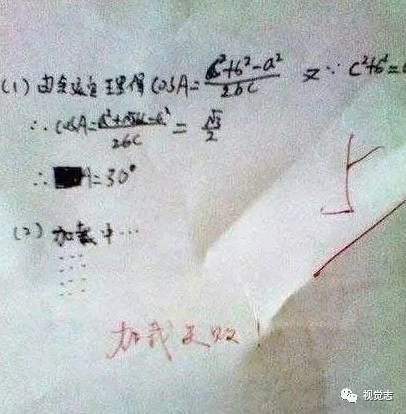 (1) 由余弦定理得 cosA=\frac{c²+b²-a²}{2bc} 又∵ c²+b²=
∴ cosA=\frac{a²+√3bc-a²}{2bc} = \frac{√3}{2}
∴ A=30°
(2) 加载中…
…
…
…
加载失败!
视觉志